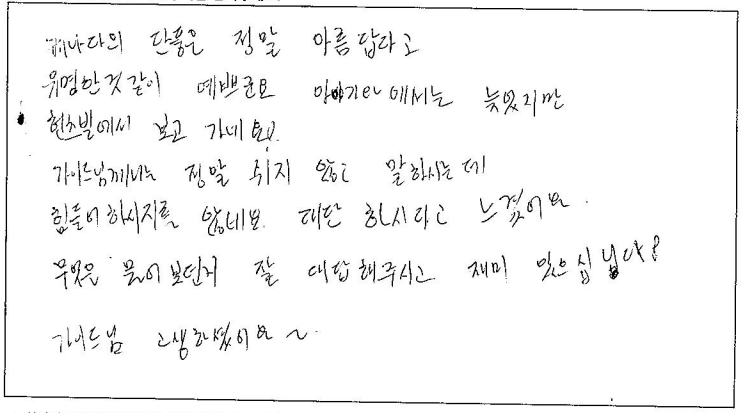 캐나다의 단풍은 정말 아름답다고
유명한것같이 예쁘군요 늦었지만
헌츠빌에서 보고 가네요!
가이드님께서는 정말 쉬지 않고 말하시는데
힘들어하시지를 않네요. 대단 하시다고 느꼈어요.
무엇을 물어보던지 잘 대답해주시고 재미 있으십니다!
가이드님 고생하셨어요~.